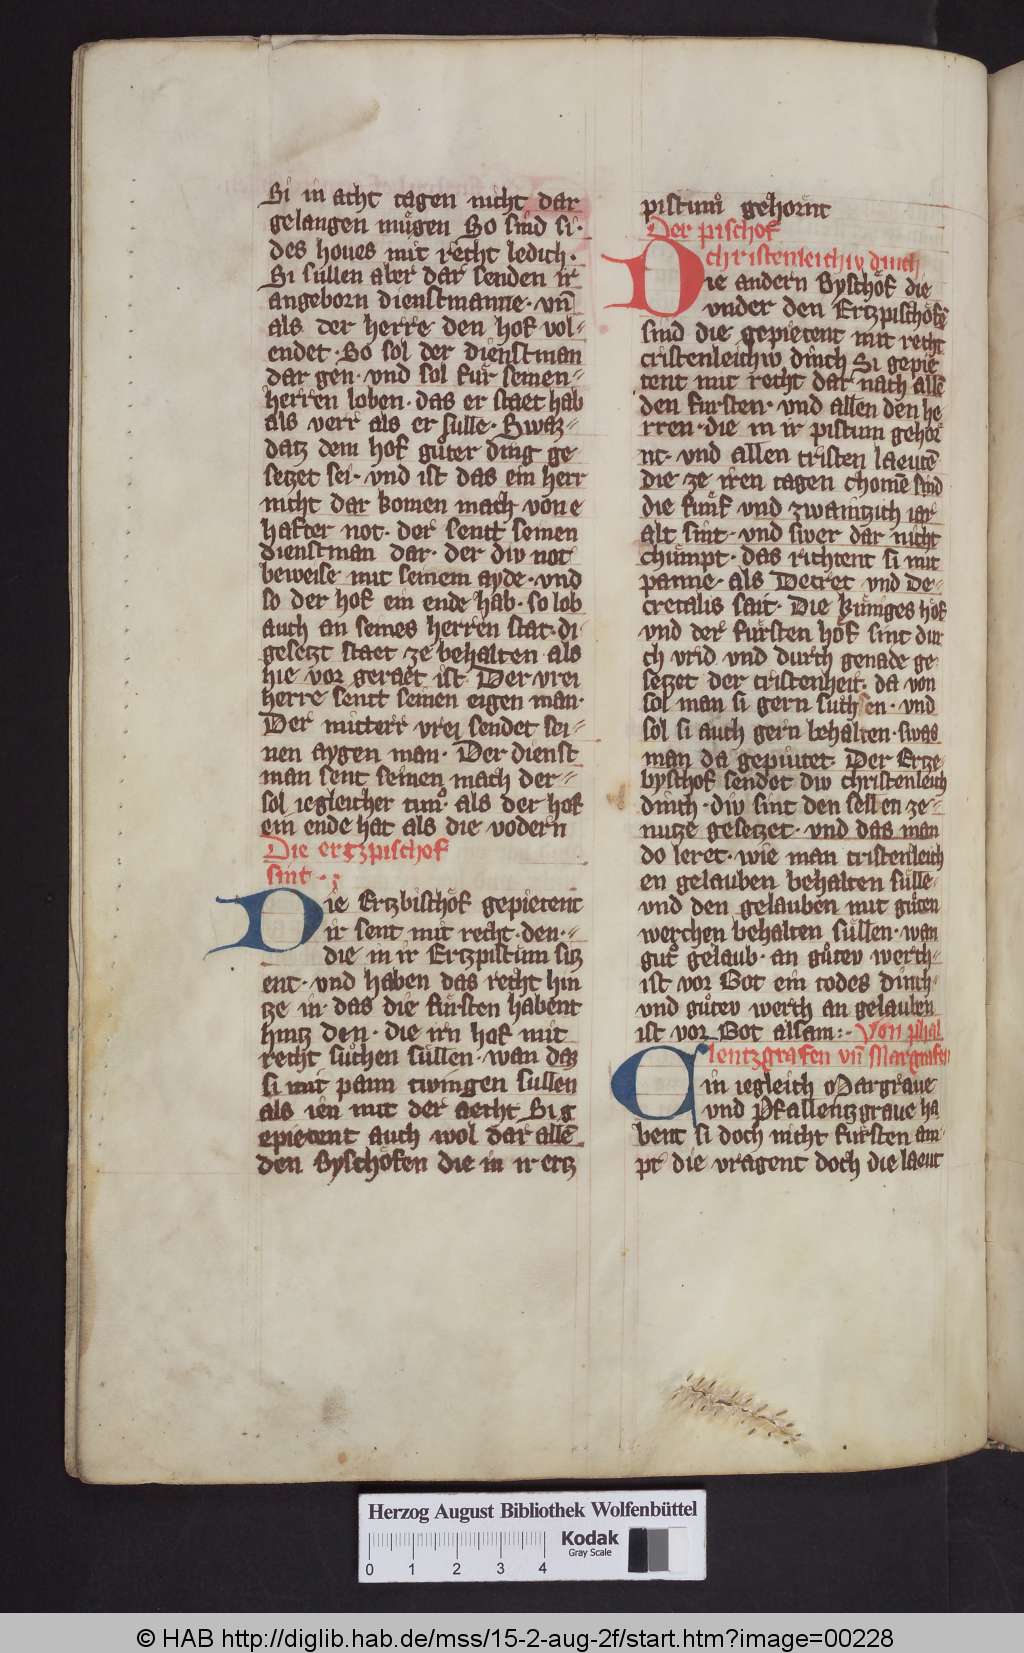 Si in acht tagen nicht dar
gelangen mugen So sind si·
des houes mit recht ledich·
Si sullen aber dar senden ir
angeborn dienstmanne· vn̄
als der herre den hof vol⸗
endet· So sol der dienstman
dar gen· vnd sol fur seinen⸗
herren loben· das er staet hab
als verr als er sulle· Swaz⸗
datz dem hof guter ding ge
setzet sei· vnd ist das ein herr
nicht dar komen mach von e
hafter not· der sentt seinen
dienstman dar· der div not
beweise mit seinem ayde· vnd
so der hof ein ende hab· so lob
auch an seines herren stat· di
gesetzt staet ze behalten als
hie vor geraet ist Der vrei
herre sentt seinen eigen man·
Der mitterr vrei sendet sei⸗
nen aygen man· Der dienst
man sent seinen mach der⸗
sol iegleicher tun· als der hof
ein ende hat als die vodern
Die ertzpischof
sint·
Die Ertzbischof gepietent
ir sent mit recht· den·
die in ir Ertzpistum sitz
ent· vnd haben das recht hin
ze in· das die fursten habent
hintz den· die irn hof mit
recht suchen sullen· wan daz
si mit pann twingen sullen
als ien mit der aecht Si g
epietent auch wol dar allē
den Byschofen die in ir ertz
pistum gehornt
Der pischof
christenleichiv dinch
Die andern Byschof die
vnder den Ertzpischofē
sind die gepietent mit recht
cristenleichiv dinch Si gepie
tent mit recht dar nach allē
den fursten· vnd allen den he
rren· die in ir pistum gehor
nt· vnd allen cristen laeutē
die ze iren tagen chomē sind
die funf vnd zwaintzich iar
alt sint· vnd swer dar nicht
chumpt· das richtent si mit
panne· als Decret vnd De⸗
cretalis sait· Die kuniges hof
vnd der fursten hof sint dur
ch vrid vnd durch genade ge
setzet der cristenheit· da von
sol man si gern suchen· vnd
sol si auch gern behalten· swas
man da gepiutet· Der Ertze
byschof sendet div christenleich
dinch· div sint den selen ze⸗
nutze gesetzet· vnd das man
do leret· wie man cristenleich
en gelauben behalten sulle·
vnd den gelauben mit guten
werchen behalten sullen· wan
gut gelaub· an gutev werch⸗
ist vor Got ein todes dinch·
vnd gutev werch an gelauben
ist vor Got alsam:· Von phal
lentzgrafen vn̄ Margrafen
Ein iegleich Margraue
vnd Pfallentzgraue ha
bent si doch nicht fursten am·
pt die vragent doch die laeut
Herzog August Bibliothek Wolfenbüttel
Kodak
Gray Scale
0 1 2 3 4
© HAB http://diglib.hab.de/mss/15-2-aug-2f/start.htm?image=00228